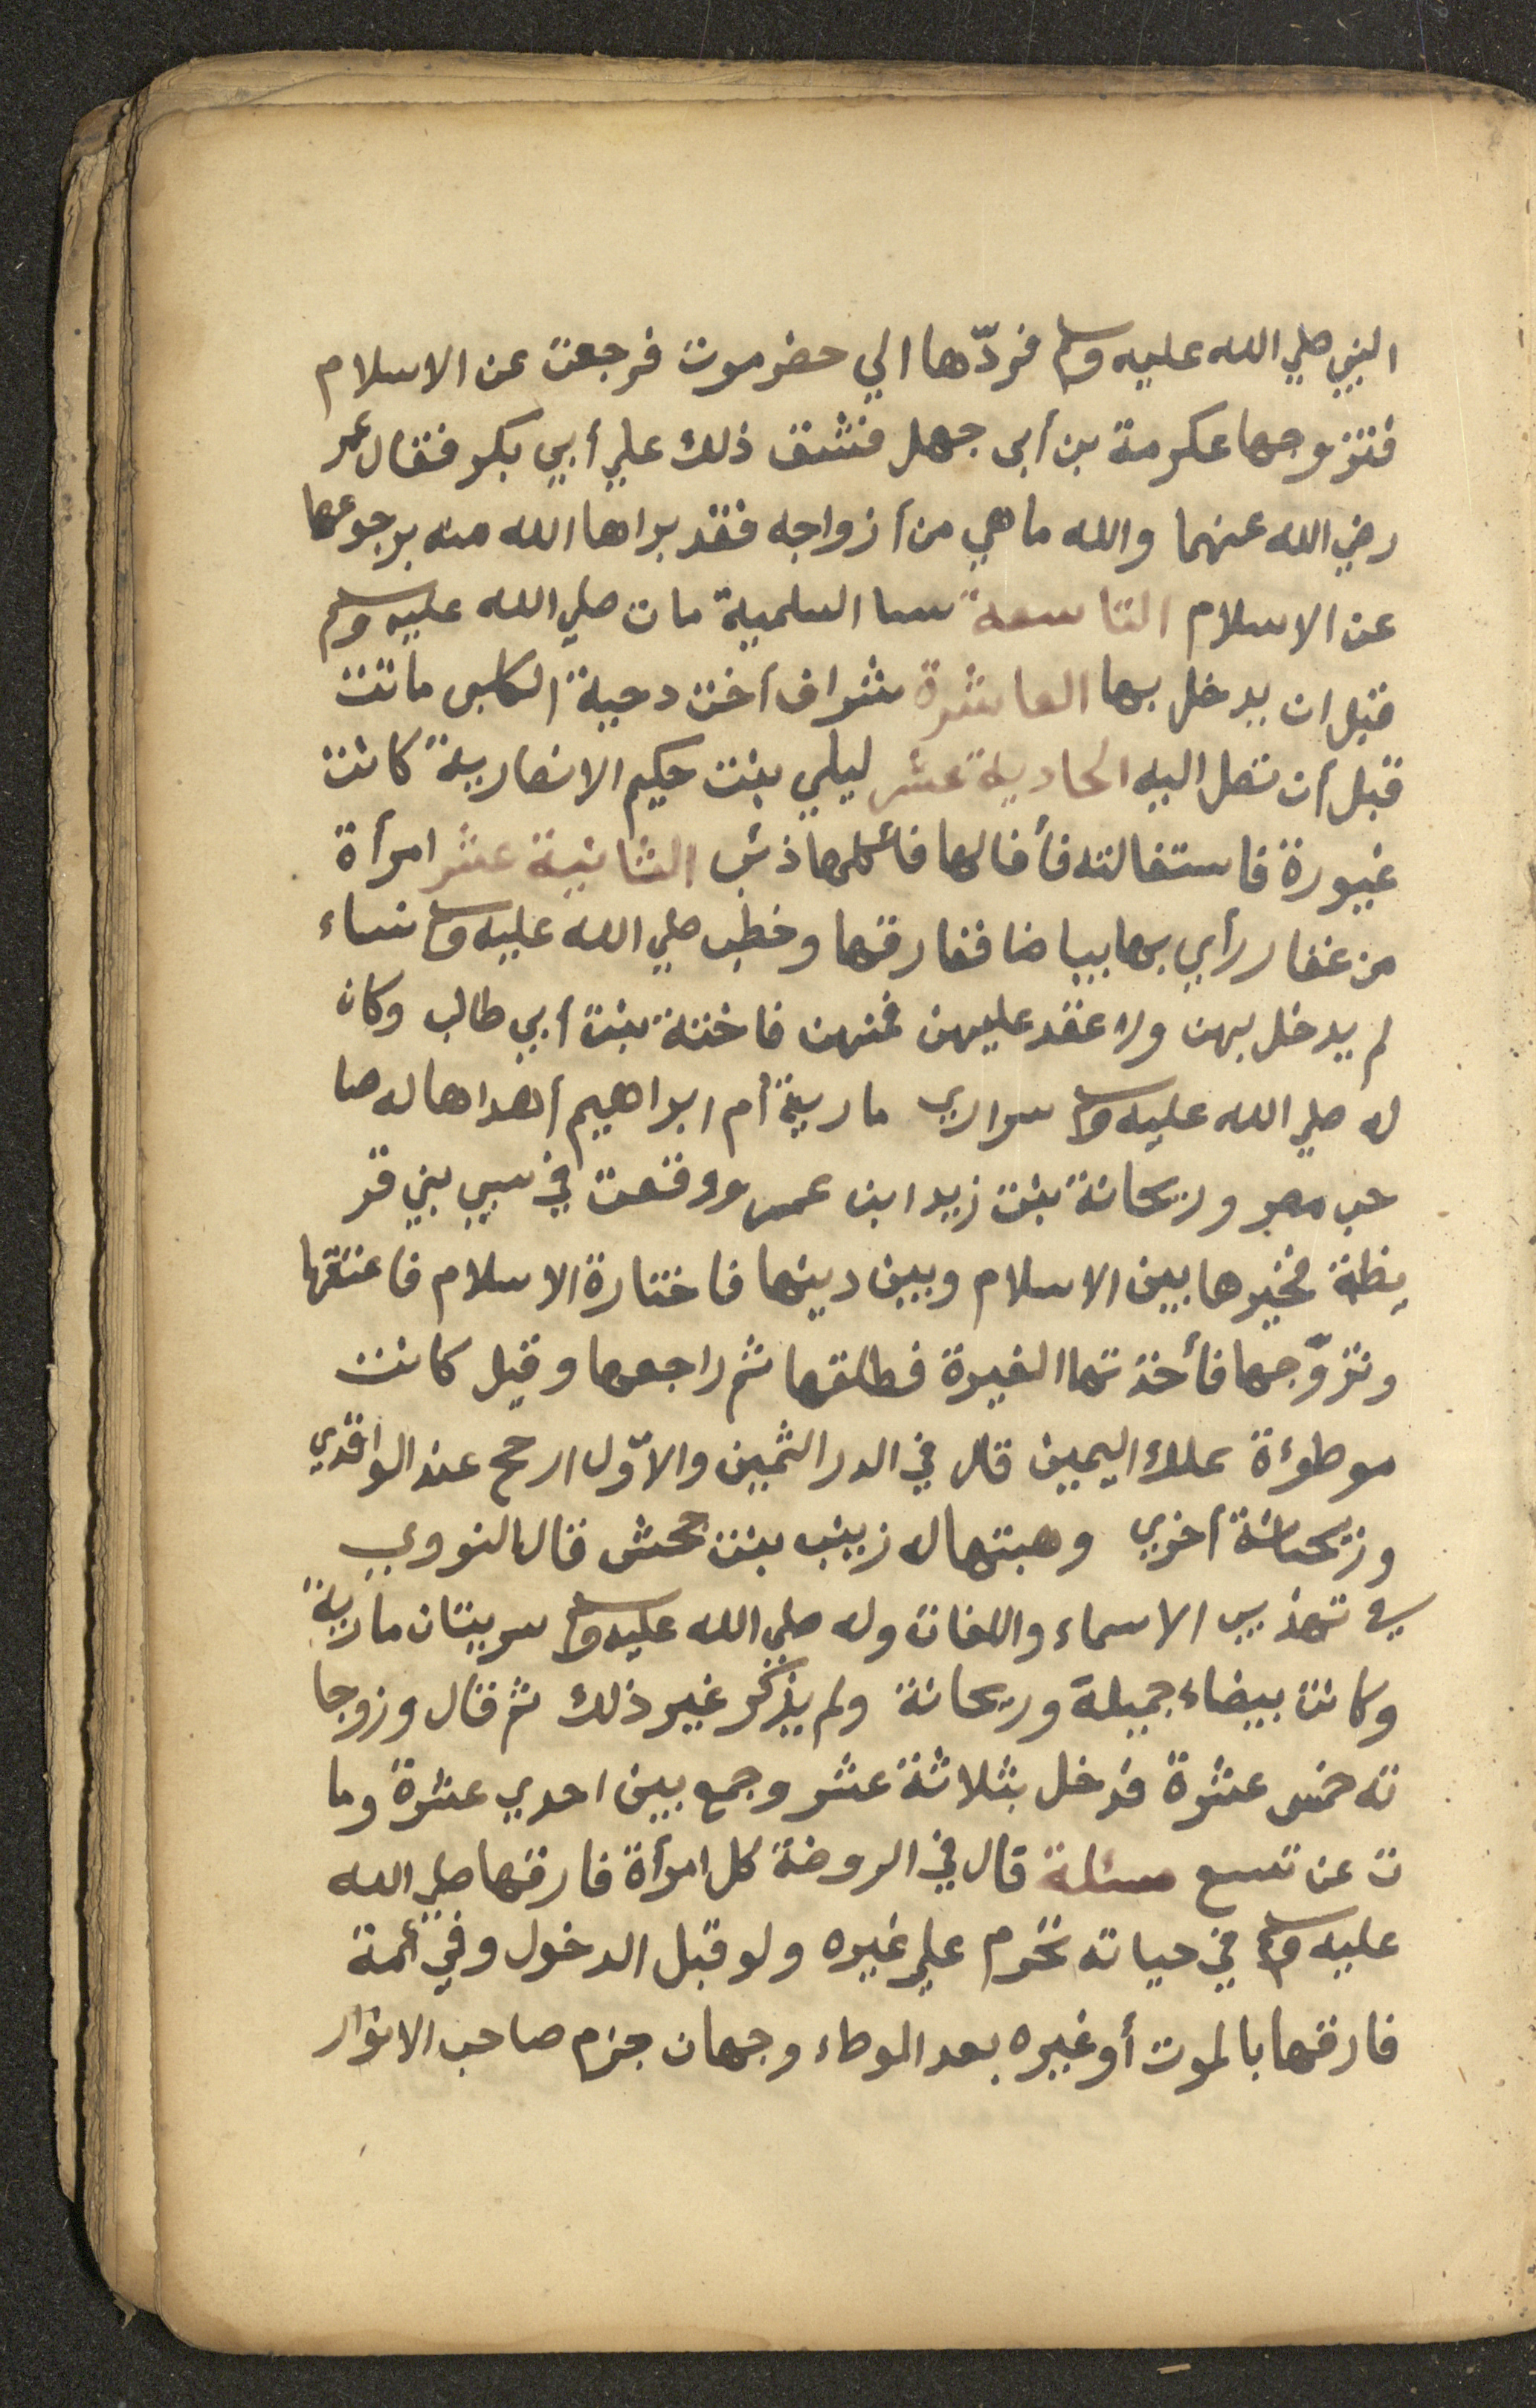 النبي صلي الله عليه وسلم فردّها الي حضرموت فرجعت عن الاسلام
فتزوجها عكرمة بن أبى جهل فشق ذلك علي أبي بكر فقال عمر
رضي الله عنهما والله ما هي من أزواجه فقد براها الله منه برجوعها
عن الاسلام التاسعة سنا السلمية مات صلي الله عليه وسلم
قبل ان يدخل بها العاشرة شراف أخت دحية الكلبى ماتت
قبل أن تصل اليه الحادية عشر ليلي بنت حكيم الانصارية كانت
غيورة فاستقالته فأقالها فأكلها ذئب الثانية عشر امرأة
من غفار رأي بها بياضا ففارقها وخطب صلي الله عليه وسلم نساء
لم يدخل بهن ولا عقد عليهن فمنهن فاختة بنت أبي طالب وكان
له صلي الله عليه وسلم سراري مارية أم ابراهيم أهداها له صا
حب مصر وريحانة بنت زيد ابن عمرو وقعت في سبي بني قر
يظة فخيرها بين الاسلام وبين دينها فاختارة الاسلام فاعتقها
وتزوّجها فأخذتها الغيرة فطلقها ثم راجعها وقيل كانت
موطؤة بملك اليمين قال في الدر الثمين والاوّل ارجح عند الواقدي
وريحانة أخري وهبتها له زينب بنت جحش قال النووي
في تهذيب الاسماء واللغات وله صلي الله عليه وسلم سريتان مارية
وكانت بيضاء جميلة وريحانة ولم يذكر غير ذلك ثم قال وزوجا
ته خمس عشرة فدخل بثلاثة عشر وجمع بين احدي عشرة وما
ت عن تسع مسئلة قال في الروضة كل امرأة فارقها صلي الله
عليه وسلم في حياته تحرم علي غيره ولو قبل الدخول وفي أمة
فارقها بالموت أو غيره بعد الوطء وجهان جزم صاحب الانوار